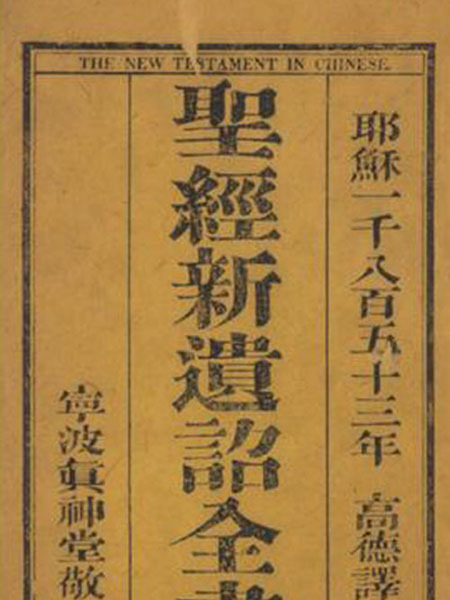 THE NEW TESTAMENT IN CHINESE.
耶穌一千八百五十三年 高德譯
聖經新遺詔全書
寧波眞神堂敬